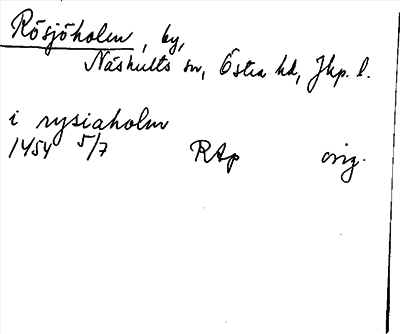 Rösjöholm, by,
Näshults sn, Östra hd, Jkp. l.
i rysiaholm
1454 5/7 RAp orig.